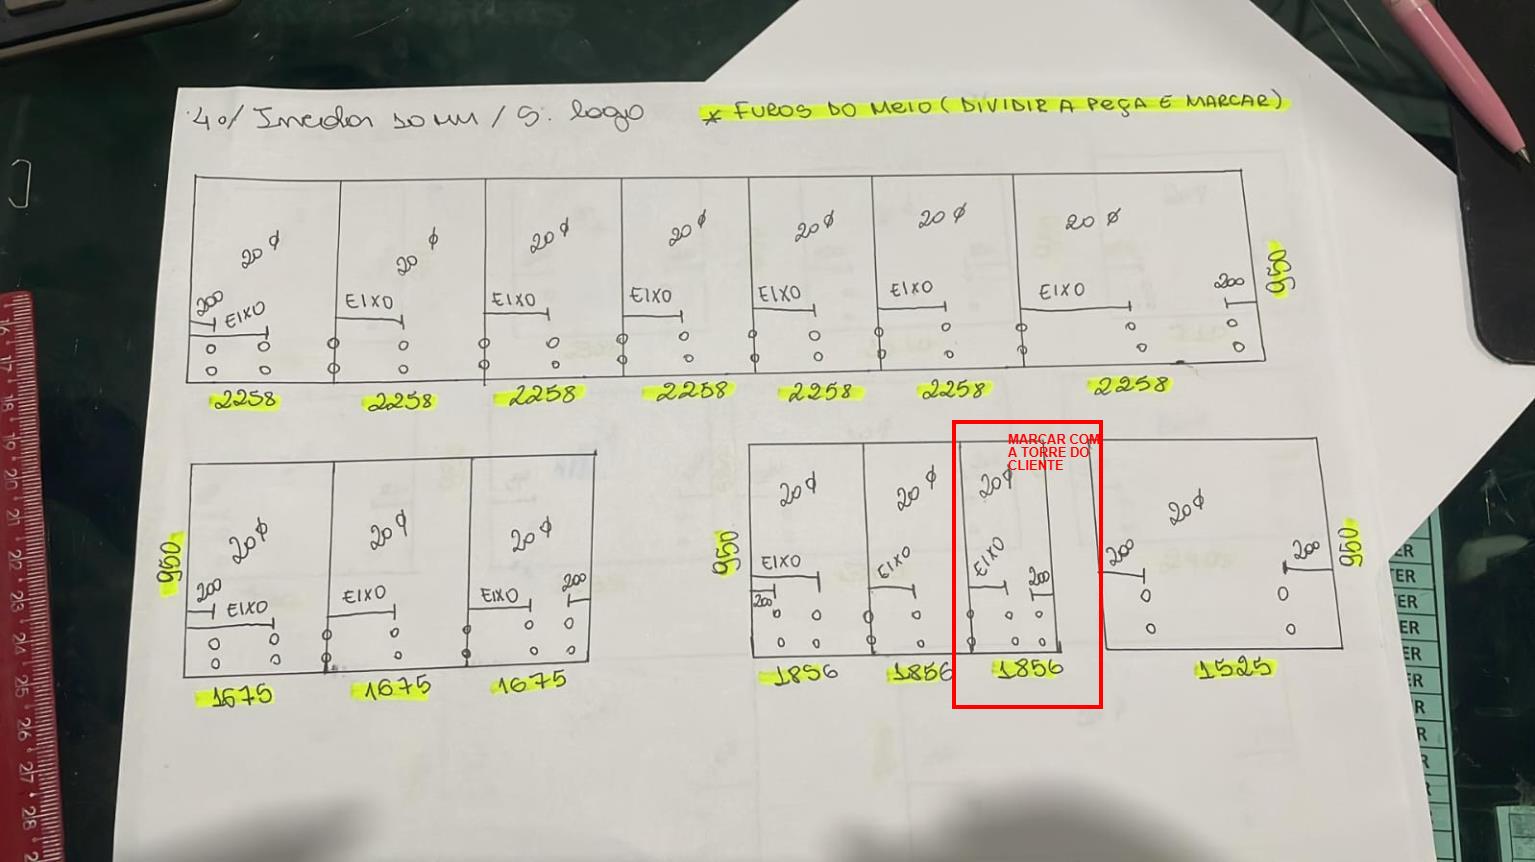 40/ Incolor 10 MM / S. logo
* FUROS DO MEIO (DIVIDIR A PEÇA E MARCAR)
20 ϕ
20 ϕ
20 ϕ
20 ϕ
20 ϕ
20 ϕ
20 ϕ
200
EIXO
EIXO
EIXO
EIXO
EIXO
EIXO
EIXO
200
950
2258
2258
2258
2258
2258
2258
2258
950
20 ϕ
20 ϕ
20 ϕ
200
EIXO
EIXO
EIXO
200
1675
1675
1675
MARCAR COM
A TORRE DO
CLIENTE
950
20 ϕ
20 ϕ
20 ϕ
EIXO
200
EIXO
EIXO
200
1856
1856
1856
20 ϕ
200
200
950
1525
16
17
18
19
20
21
22
23
24
25
26
27
28
ER
TER
ER
ER
ER
ER
R
R